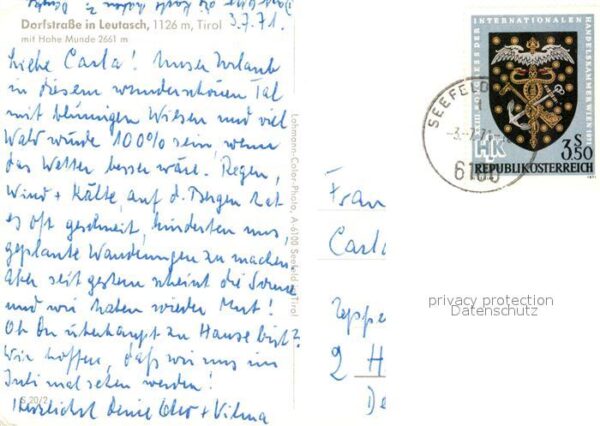 Dorfstraße in Leutasch, 1126 m, Tirol
mit Hohe Munde 2661 m
3.7.71.
Liebe Carla! Unser Urlaub
in diesem wunderschönen Tal
mit blumigen Wiesen und viel
Wald würde 100% sein wenn
das Wetter besser wäre. Regen,
Wind + Kälte, auf d. Bergen hat
es oft geschneit, hinderten uns,
geplante Wanderungen zu machen.
Aber seit gestern scheint die Sonne
und wir haben wieder Mut!
Ob Du überhaupt zu Hause bist?
Wir hoffen, daß wir uns im
Juli mal sehen werden!
S 20/2
Herzlichst Deine + Vilma
Lohmann-Color-Photo, A-6100 Seefeld in Tirol
Frau
Carla
Zeppe
2 H
De
privacy protection
Datenschutz
KONGRESS DER INTERNATIONALEN
HANDELSKAMMER WIEN 1971
XXIII
HK
S
3.50
REPUBLIK ÖSTERREICH
SEEFELD
-3.-7.71-
6100